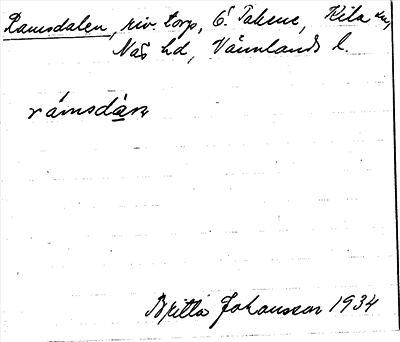 Ramsdalen, riv. torp, Ö. Takene, Kila sn,
Näs hd, Värmlands l.
ràmsdàɳ
Britta Johansson 1934